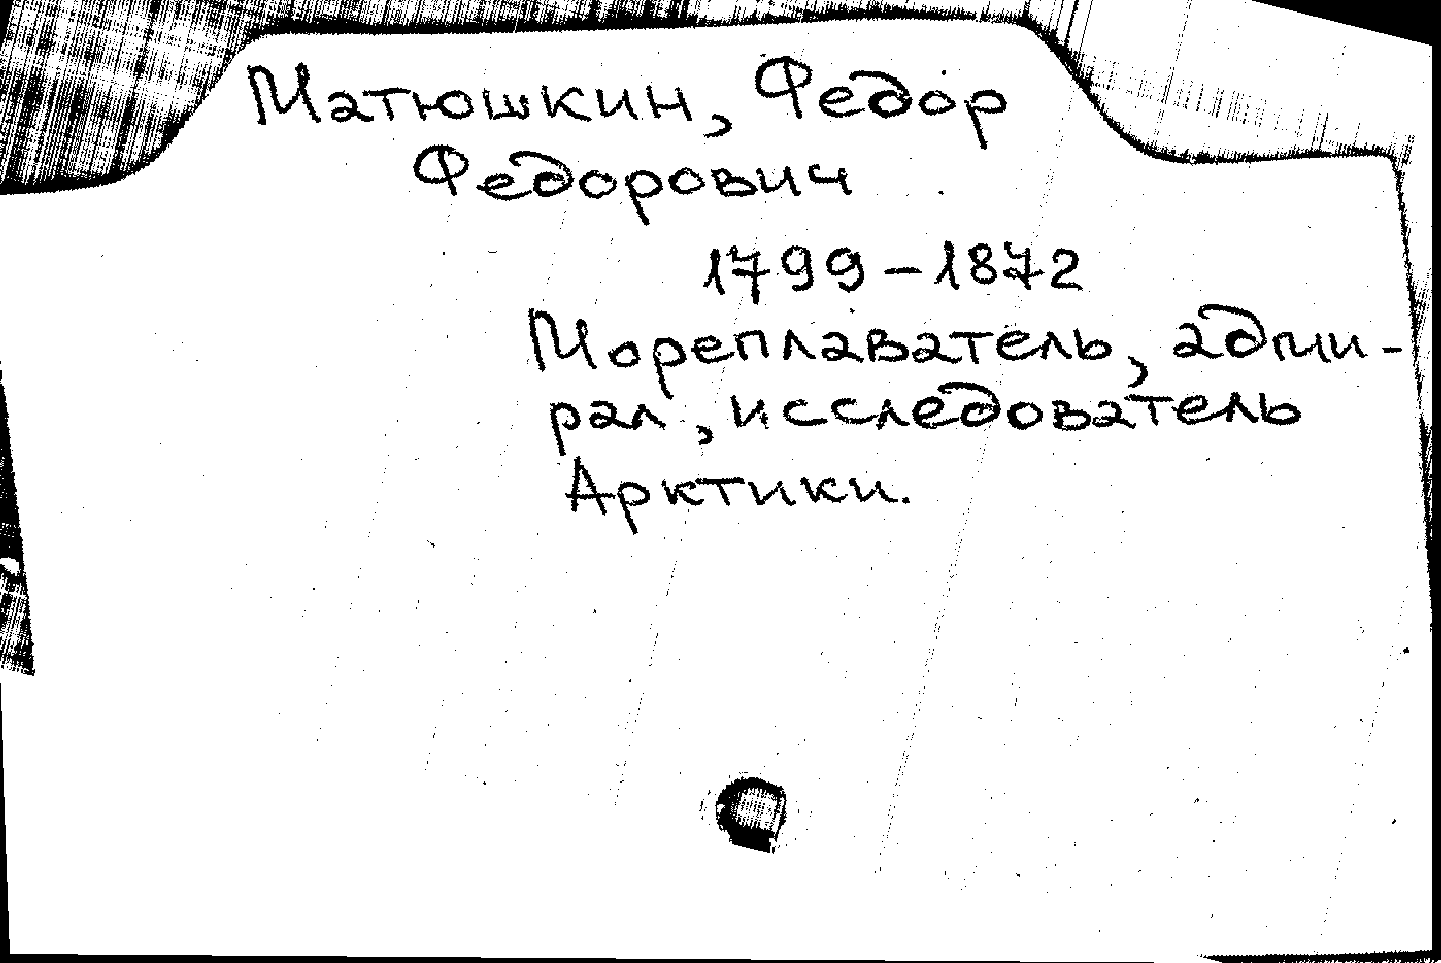 Матюшкин, Федор
Федорович
1799-1872
Мореплаватель, адми-
рал, исследователь
Арктики.